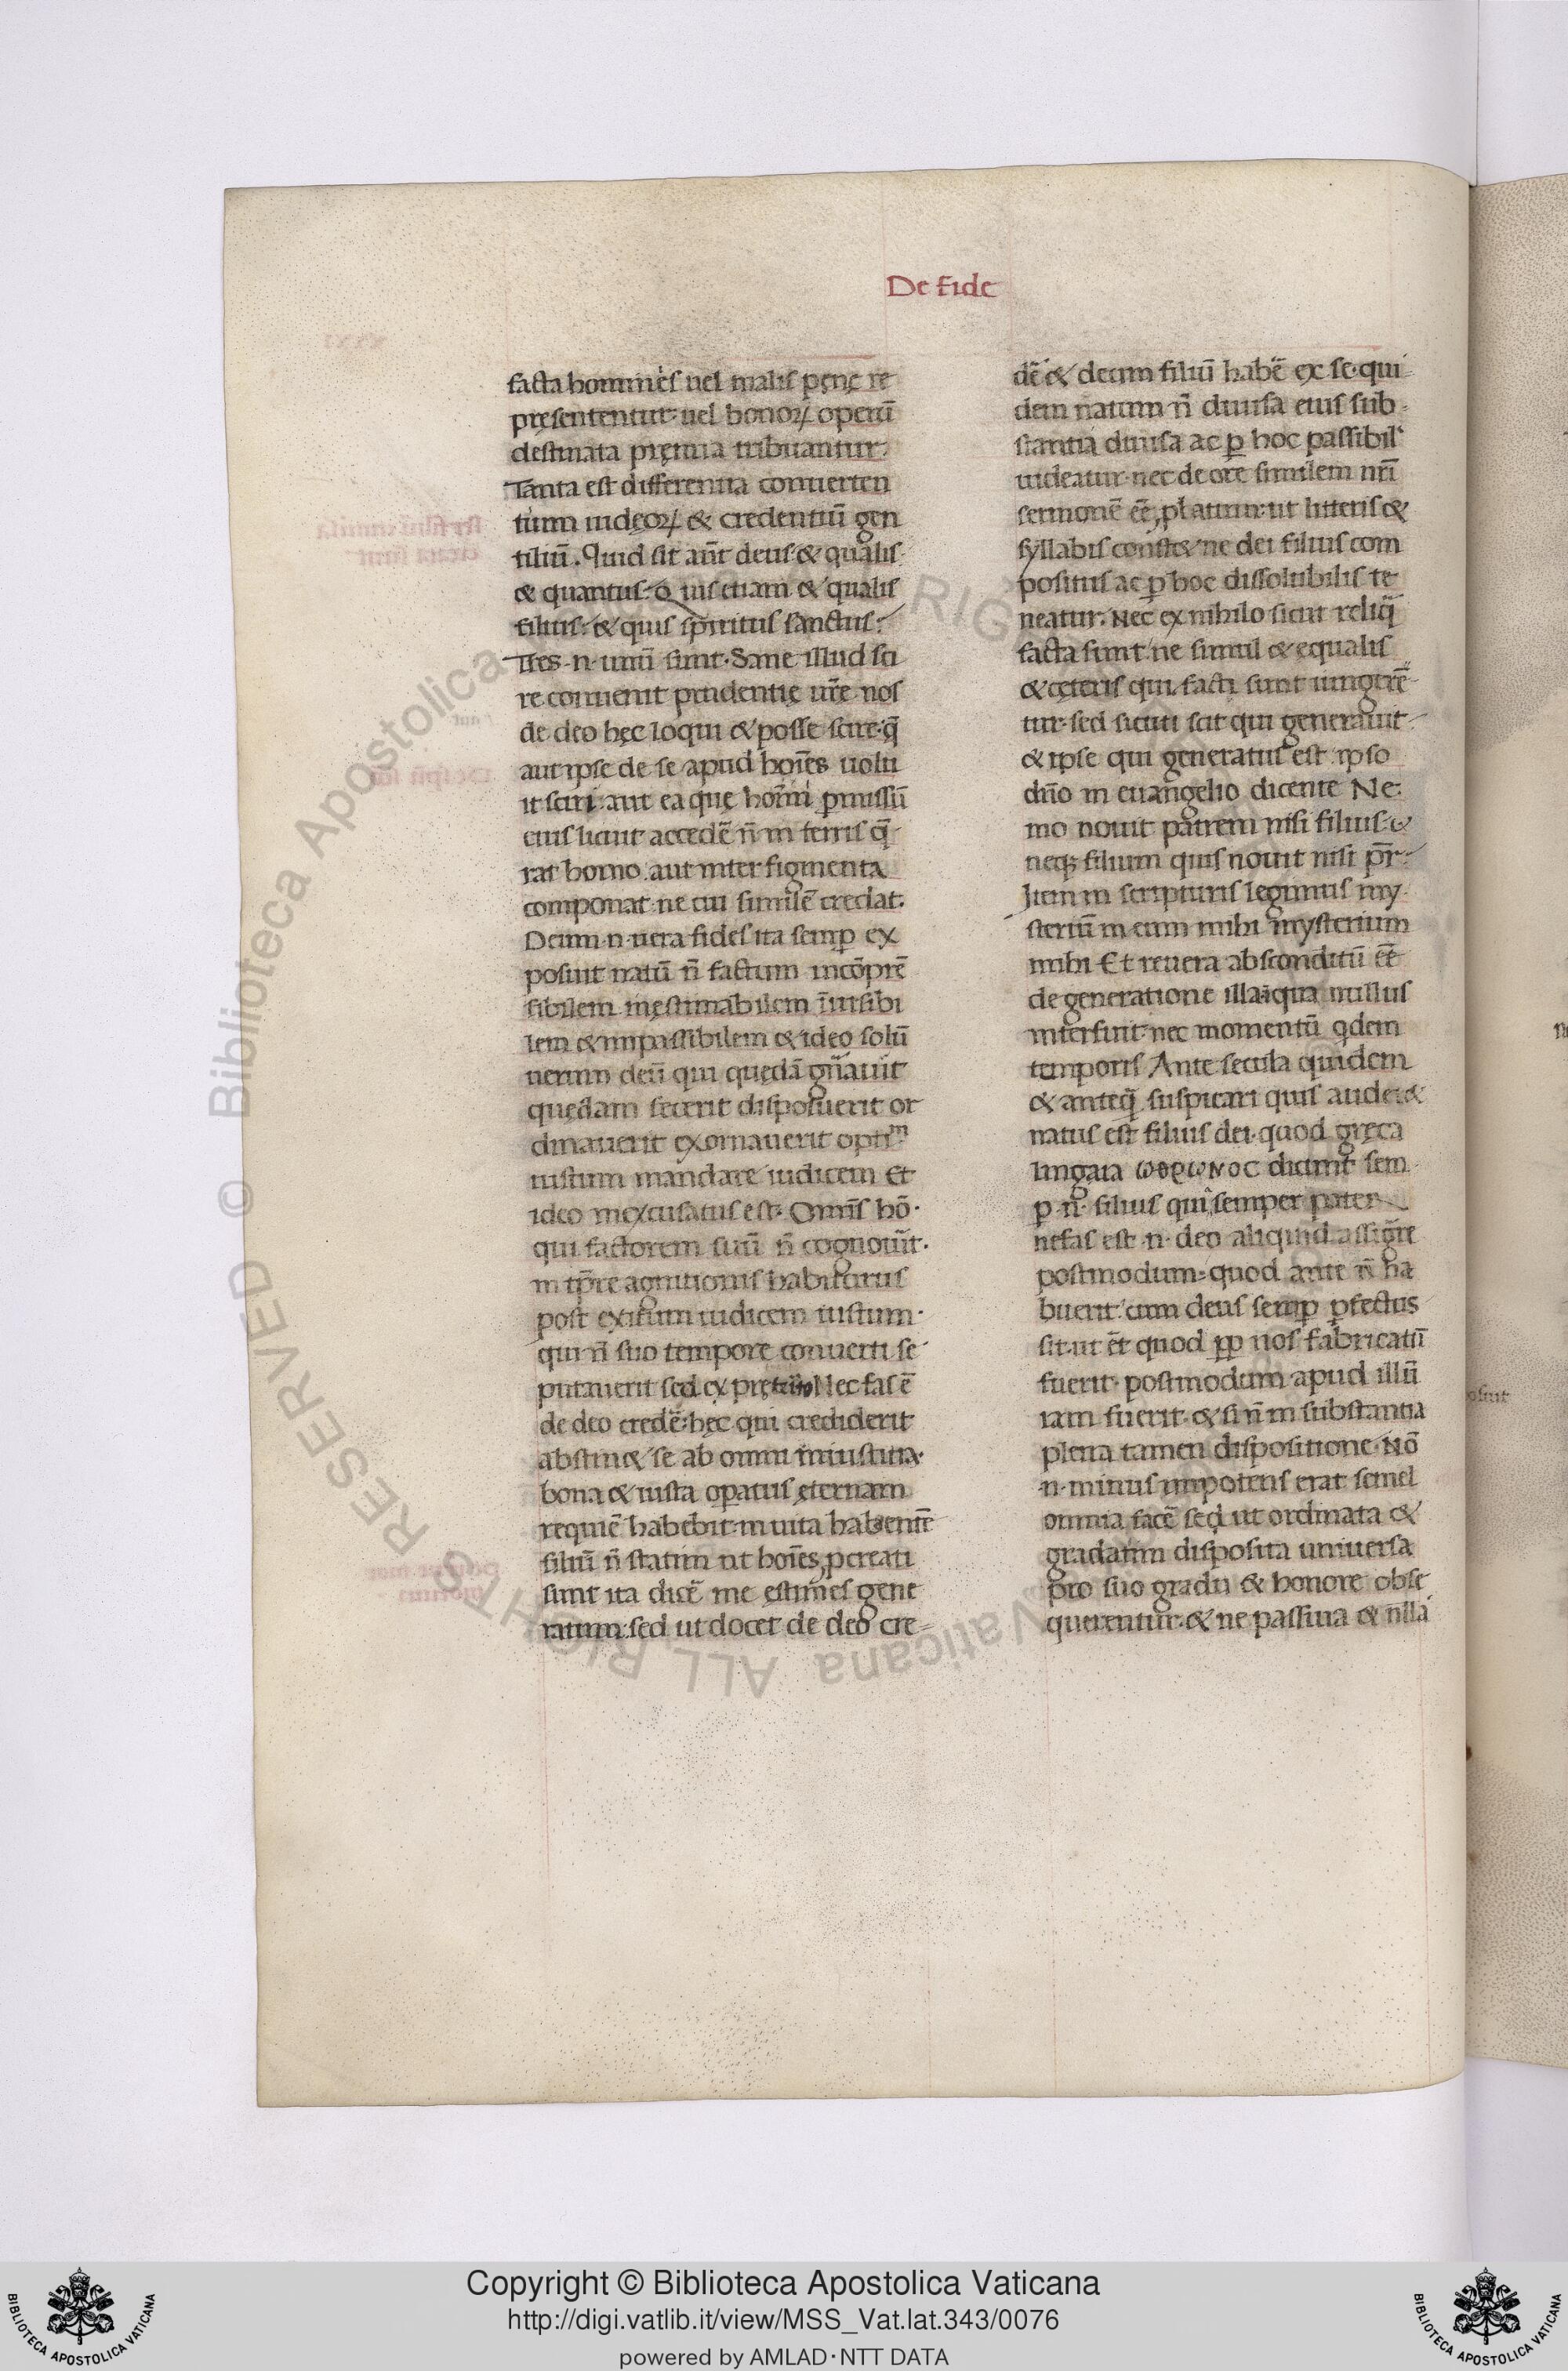 De fide
facta hominẽs uel malis pęnę re
pręsententur: uel bonoꝝ operũ
destinata pręmia tribuantur.
Tanta est differentia conuerten
tium iudęoꝝ & credentiũ gen
tiliũ. Quid sit aũt deus & qualis
& quantus: q̃ uis etiam & qualis
filius: & quis spiritus sanctus:
Tres .n. unũ sunt. Sane illud sci
re conuenit prudentię ur̃e nos
de deo hęc loqui & posse scire q̃
aut ipse de se apud hoĩes uolu
it sciri: aut ea que hoĩm ꝑmissũ
eius licuit accedẽ ñ in terris q̃
rat homo: aut inter figmenta
componat ne cui similẽ credat.
Deum .n. uera fides ita semꝑ ex
posuit natũ ñ factum incõprẽ
sibilem inęstimabilem ĩuisibi
lem & impassibilem & ideo solũ
uerum deũ qui quędã gñauit
quędam fecerit disposuerit or
dinauerit exornauerit optiᵐ
iustum mandare iudicem Et
ideo inexcusatus est. Omñs hõ.
qui factorem suũ ñ cognouĩt.
in tp̃re agnitionis habiturus
post exitum iudicem iustum.
qui ñ suo tempore conuerti se
putauerit sed ex pręterito Nec fas ẽ
de deo credẽ: hęc qui crediderit
abstin& se ab omni iniustitia.
bona & iusta oꝑatus ęternam
requiẽ habebit in uita habentẽ
filiũ ñ statim ut hoĩes ꝓcreati
sunt ita dicẽ me ęstimes gene
ratum: sed ut docet de deo cre-
dẽ & deum filiũ habẽ ex se qui
dem natum ñ diuisa eius sub
stantia diuisa ac ꝑ hoc passibil'
uideatur nec de ore similem nr̃i
sermonẽ eẽ ꝓlatum: ut litteris &
syllabis const& ne dei filius com
positus ac ꝑ hoc dissolubilis te
neatur. Nec ex nihilo sicut reliq̃
facta sunt ne simul & equalis
& cęteris qui facti sunt iungerẽ
tur sed sicuti scit qui generauit
& ipse qui generatus est ipso
dño in euangelio dicente Ne:
mo nouit patrem nisi filius: &
neqꝫ filium quis nouit nisi pr̃
Item in scripturis legimus my
steriũ meum mihi mysterium
mihi Et reuera absconditũ eẽ
de generatione illa: ĩ qua nullus
interfuit nec momentũ qdem
temporis Ante secula quidem
& anteq̃ suspicari quis aude&
natus est filius dei quod gręca
lingaia ωθρωνος dicunt sem
ꝑ .n. filius qui semper pater
nefas est .n. deo aliquid assigr̃e
postmodum: quod ante ñ ha
buerit: cum deus semꝑ ꝑfectus
sit: ut ẽt quod ꝓp nos fabricatũ
fuerit postmodum apud illũ
iam fuerit & si ñ in substantia
plena tamen dispositione Nõ
.n. minus impotens erat semel
omnia facẽ sed ut ordinata &
gradatim disposita uniuersa
pro suo gradu & honore obse
querentur & ne passiua & nlla
Copyright © Biblioteca Apostolica Vaticana
http://digi.vatlib.it/view/MSS_Vat.lat.343/0076
powered by AMLAD·NTT DATA